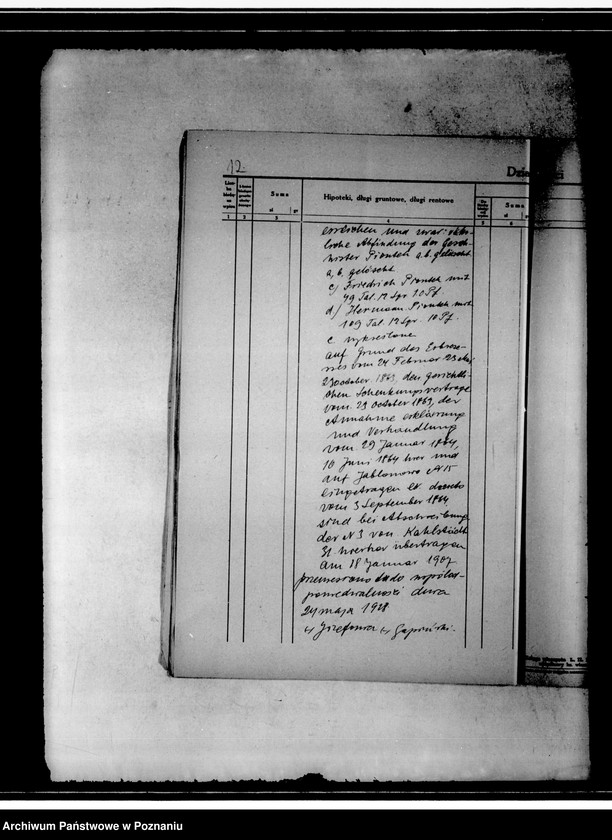 12
Dzia
Suma
Hipoteki, długi gruntowe, długi rentowe
Suma
zł gr
zł
1 2 3 4 5 6
und
Abfindung der Gesch-
wister Piontek a.b. gelöscht
a, b, gelöscht
c) Friedrich Piontek mit
49 Tal. 12 Sgr. 10 Pf.
d) Hermann Piontek mit
109 Tal. 12 Sgr. 10 Pf.
c. wykreślono
auf Grund des Erbreze-
sses vom 24 Februar 23 Mai
23 October 1863, des gerichtli-
chen Schenkungsvertrags
vom 23 October 1863, der
Annahme erklärung
und Verhandlung
vom 29 Januar 1864,
10 Juni 1864 hier und
auf Jablonowo № 15
eingetragen
vom 3 September 1864
sind bei Abschreibung
der № 3 von Kahlstädt
31 hierher übertragen
am 18 Januar 1907
przeniesiono do współod-
powiedzialności dnia
24 maja 1928
Archiwum Państwowe w Poznaniu